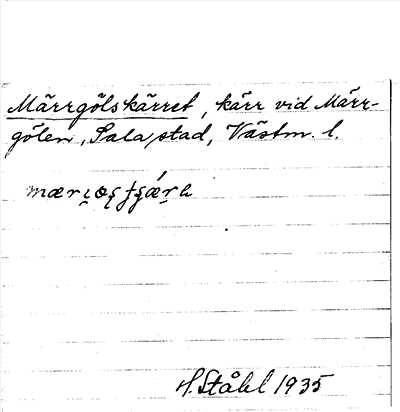 Märrgölskärret, kärr vid Märr-
gölen, Sala stad, Västm. l.
H. Ståhl 1935